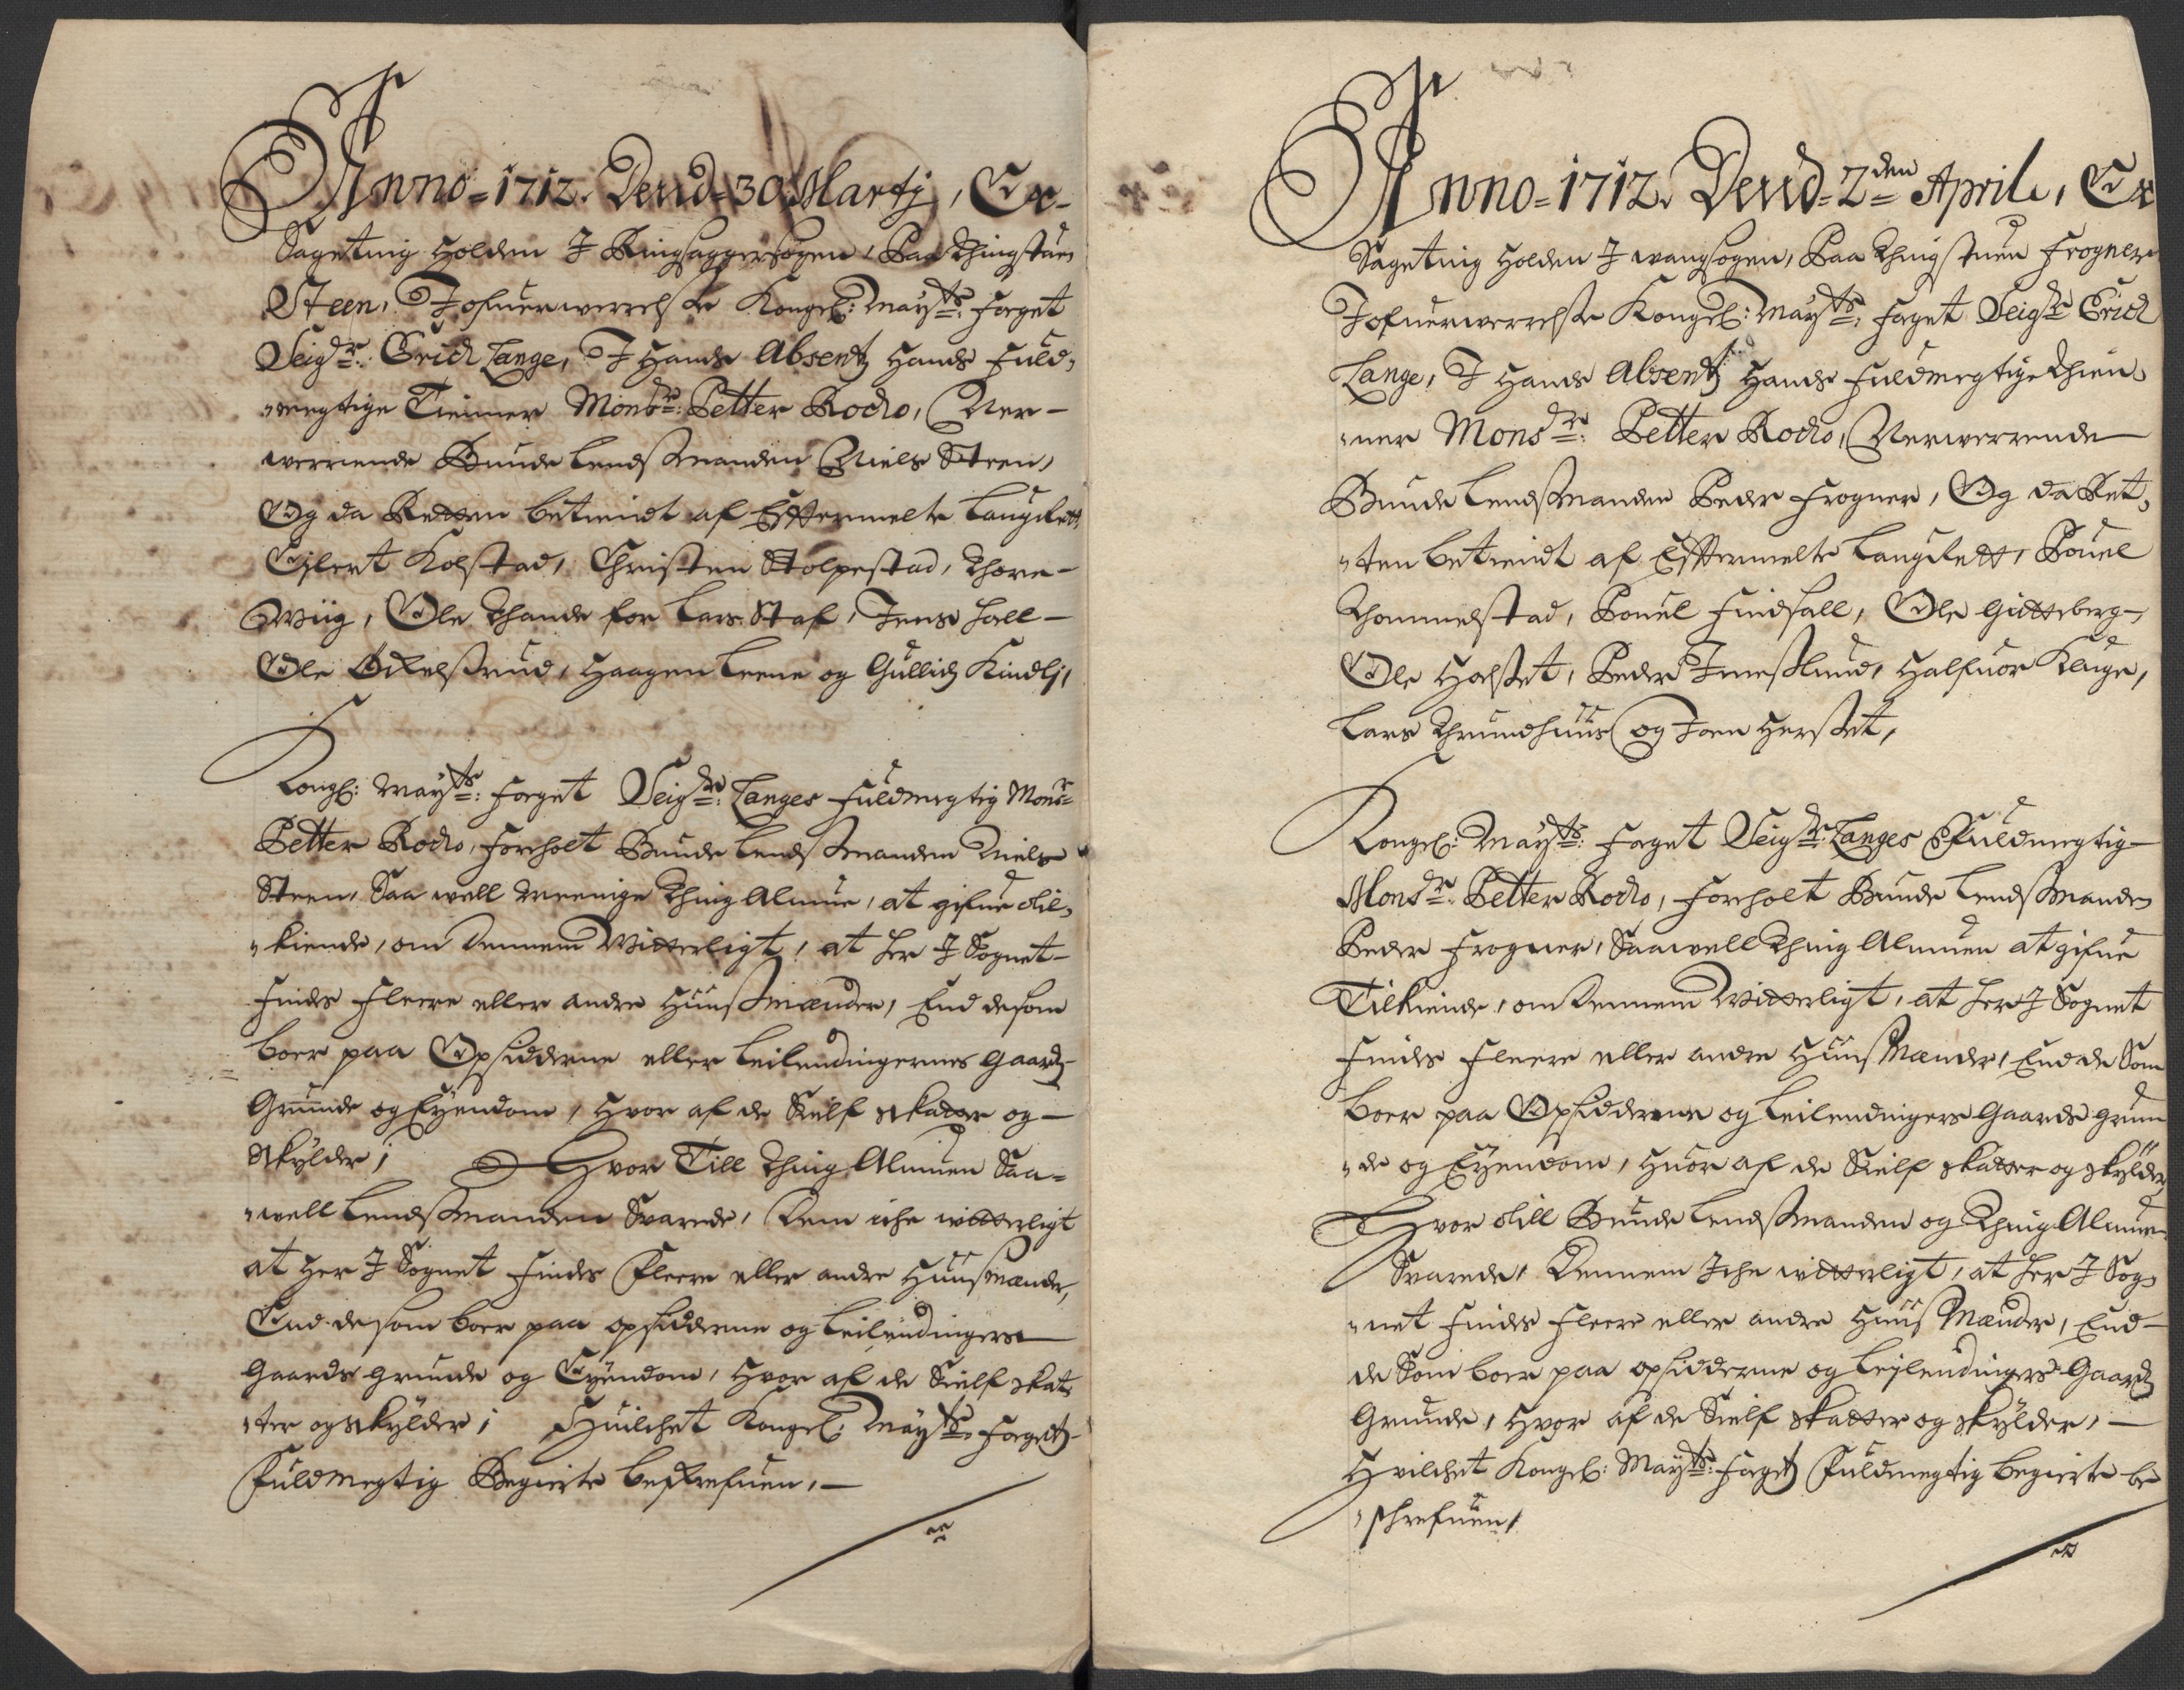 Anno = 1712. Dend = 30 Martij, Er-
Sageting Holden I Ringsaggersogen, Paa Thingstuen
Steen, I ofuerwerrelsse Kongel: Mayts: Foget
Seigr: Erich Lange, I Hands Absentz Hands Fuld,
megtige Tienner Monsr: Petter Rocho, Ner-
werrende Bunde Lendsmanden Niels Steen,
Og da Retten betiendt af Efftermelte Laugrett,
Eylert Kolstad, Christen Stolpestad, Thore-
Wiig, Ole Thande for Lars Staf, Jens Hall-
Ole Økelsrud, Haagen Leene og Gullich Kindlj,
Kongl: Mayts: Foget Seigr: Langes Fuldmegtig Monsr
Petter Rocho, Forholt Bunde Lendsmanden Niels
Steen, Saa well Meenige Thing Almue, at gifue till,
kiende, om dennem Witterligt, at her I Sognet-
Findes Fleere eller andre Huusmænder, End de som
boer paa Opsidderne eller Leilendingernes Gaards
Grunde og Eyendom, Hvor af de Sielf Skatter og-
Skylder; Hvor Till Thing Almuen Saa=
well Lendsmanden Svarede, Dem iche witterligt
at Her I Sognet Findes Fleere eller andre Huusmænder,
End de som boer paa opsidderne og Leilendingers
Gaards grunde og Eyendom, Hvor af de Sielf skat,
ter og skylder; Huilchet Kongel: Mayts: Fogetz
Fuldmegtig Begierte beskrefuen,
Anno = 1712. Dend = 2den Aprile, Er
Sageting Holden I Wangsogen, Paa Thingstuen Frogner
I ofuerwerrelsse Kongel: Mayts: Foget Seigr Erich
Lange, I Hands Absentz Hands Fuldmegtige Thien,
ner Monsr: Petter Rocho, Nerwerrende
Bunde Lendsmanden Peder Frogner, Og da Ret,
ten betiendt af Efftermelte Laugrett, Pouel
Thommelstad, Pouel Findsall, Ole Gitteberg-
Ole Hoelset, Peder Imeslund, Halfuor Kluge,
Lars Thrundhuus og Joen Herset,
Kongel: Mayts: Foget Seigr: Langes Fuldmegtig-
Monsr: Petter Rocho, Forholt Bunde Lendsmanden
Peder Frogner, Saawell Thing Almuen at gifue
Tilkiende, om dennem Witterligt, at her I Sognet
Findes Fleere eller andre Huusmænder, End de Som
boer paa Opsidderne og Leilendingers Gaards grun
de og Eyendom, Huor af de Sielf skatter og skylder,
Hvor till Bunde Lendsmanden og Thing Almuen
Svarede, Dennem Iche witterligt, at her I Sog,
net Findes Fleere eller andre Huus Mænder, End-
de Som boer paa opsidderne og Leilendingers Gaards
Grunde, Hvor af de Sielf skatter og skylder,
Hvilchet Kongel: Mayts: Fogetz Fuldmegtig begierte be
schrefuen,